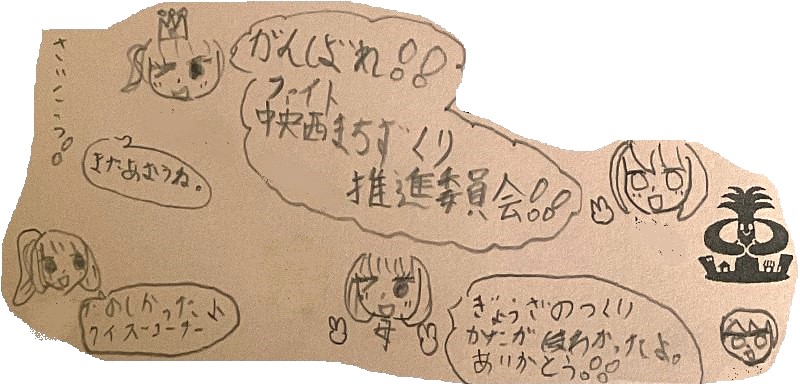 さいこう!!
がんばれ!!
ファイト
中央西まちずくり
推進委員会!!
きたあむうね。
たのしかった♪
クイズコーナー
ぎょうざのつくり
かたがはわかったよ。
ありかとう!!